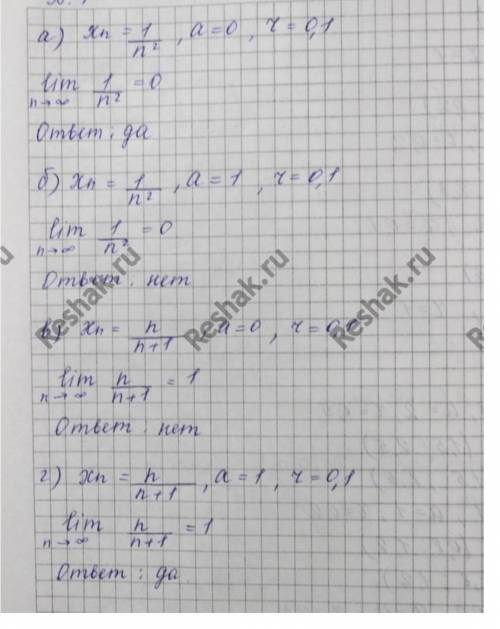 а) xn = 1/n², a=0, r=0,1
lim n→∞ 1/n² = 0
Ответ: да
б) xn = 1/n², a=1, r=0,1
lim n→∞ 1/n² = 0
Ответ: нет
в) xn = n/n+1, a=0, r=0,1
lim n→∞ n/n+1 = 1
Ответ: нет
г) xn = n/n+1, a=1, r=0,1
lim n→∞ n/n+1 = 1
Ответ: да
Reshak.ru
Reshak.ru